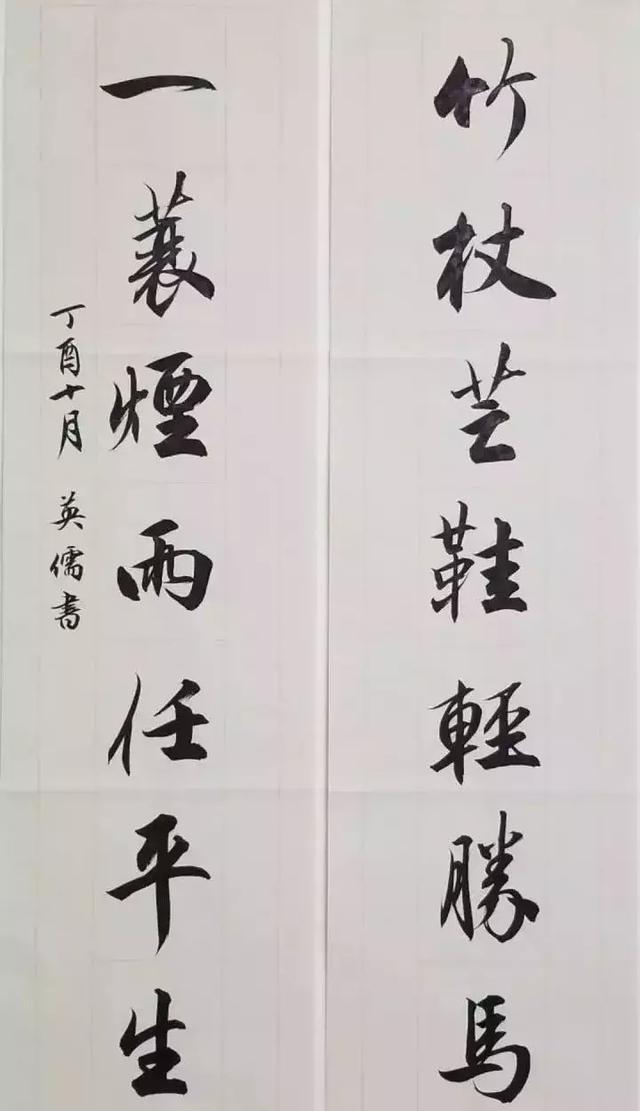 竹杖芸鞋輕勝馬
一蓑煙雨任平生
丁酉十月 英儒書